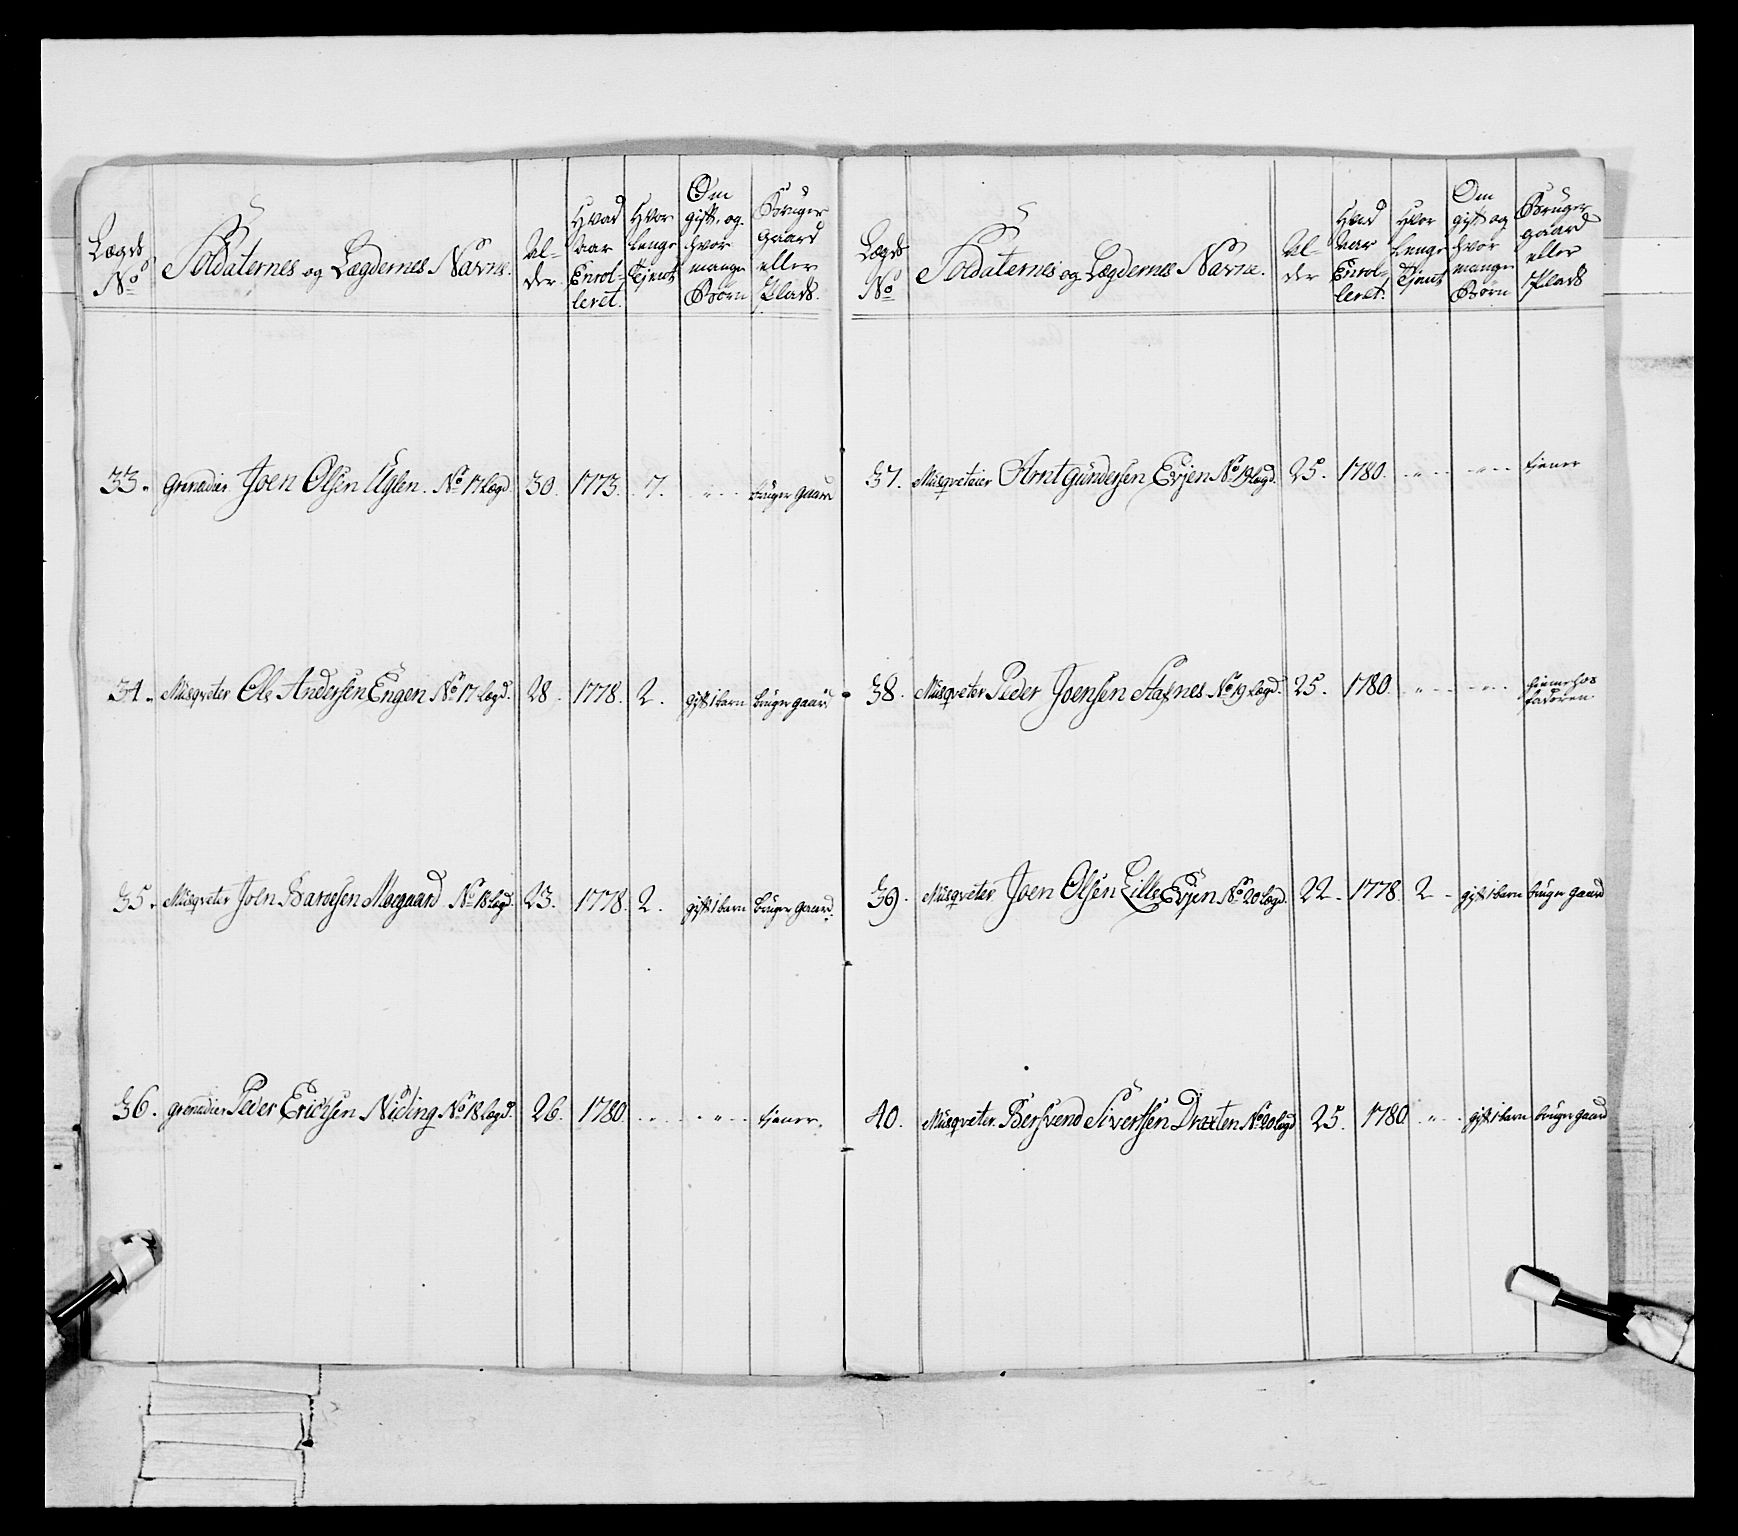 Lægds No
Soldaternes og Lægdernes Navne.
Al-
der.
Hvad
aar
Enrol-
leret.
Hvor
lenge
Tient
Om
gift, og
hvor
mange
Børn
Bruger
gaard
eller
Plads.
33. Grenadier Joen Olsen Uglen. No 17 Lægd 30. 1773. 7. " bruger gaard
34. Musqveter Ole Andersen Engen No 17 Lægd. 28. 1778. 2. gift 1 barn bruger gaard
35. Musqveter Joen Baroesen Moegaard No 18 Lægd. 23. 1778. 2. gift 1 barn bruger gaard.
36. grenadier Peder Erichsen Niding No 18 Lægd. 26. 1780 " " tiener.
Lægds No
Soldaternes og Lægdernes Navne.
Al-
der
Hvad
aar
Enrol-
leret.
Hvor
lenge
Tjent
Om
gift og
hvor
mange
Børn
Bruger
gaard
eller
Plads
37. Musqveteer Arnt Gundersen Evjen No 19 Lægd. 25. 1780. " " tiener
38. Musqveter Peder Joensen Stafnes No 19 Lægd. 25. 1780 " " tiener hos
faderen.
39. Musqveter Joen Olsen Lille Evjen No 20 Lægd. 22. 1778. 2 - gift 1 barn bruger gaard
40. Musqveter Bersvend Sivertsen Draxten No 20 Lægd 25. 1780 " gift 1 barn bruger gaard